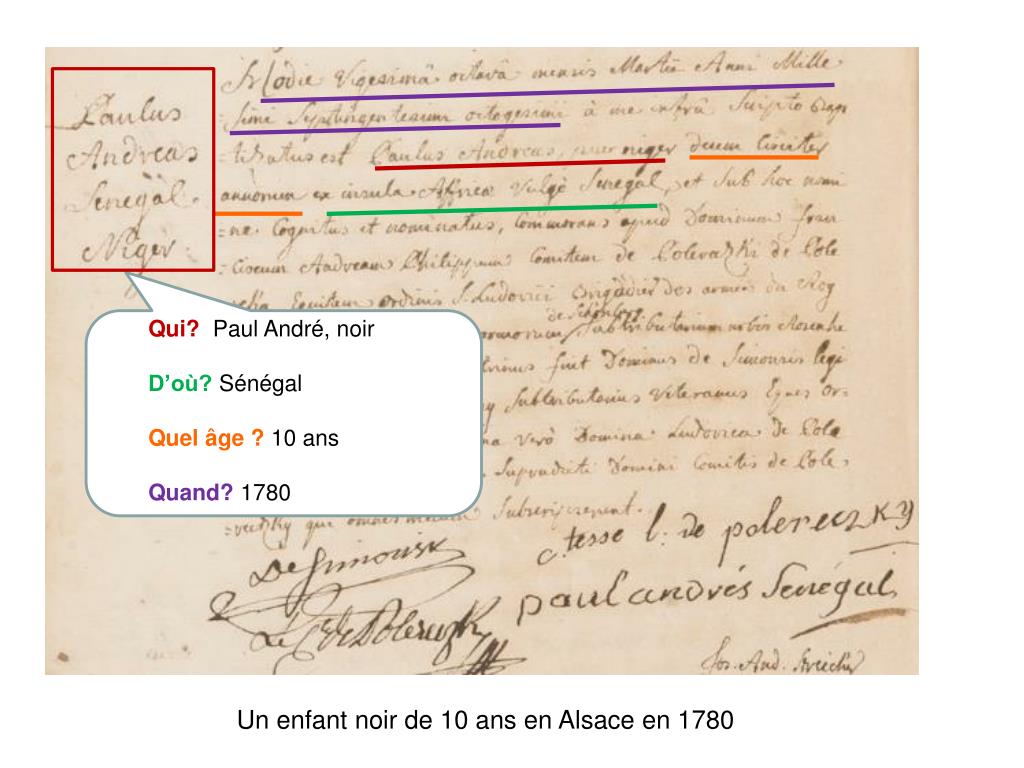 Paulus
Andreas
Senegal
Niger
Hodie Vigesimâ octavâ mensis Martii Anni Mille
simi Septingentesimi octogesimi à me infrâ Scripto bap
=tizatus est Paulus Andreas, puer niger decem Circiter
annorum ex insula Affricæ Vulgò Senegal, et sub hoc nomi
=ne Cognitus et nominatus, Commorans apud Dominum fran
=ciscum Andream Philippum Comitem de Poleratzki de Pole
Equitem ordinis S. Ludovici Brigadier des armées du Roy
de Schönberg
Subtributarium urbis
fuit Dominus de Simonris legi
Subtributarius Veteranus Eques Or=
verò Domina Ludovica de Pole
Supradicti Domini Comitis de Pole=
qui omnes mecum Subscripserunt.
Qui? Paul André, noir
D’où? Sénégal
Quel âge ? 10 ans
Quand? 1780
DeSimonisx
Ctesse l: de polereczky
paul andrés Senégal
Le Cte de Polereczky
Jos. And.
Un enfant noir de 10 ans en Alsace en 1780